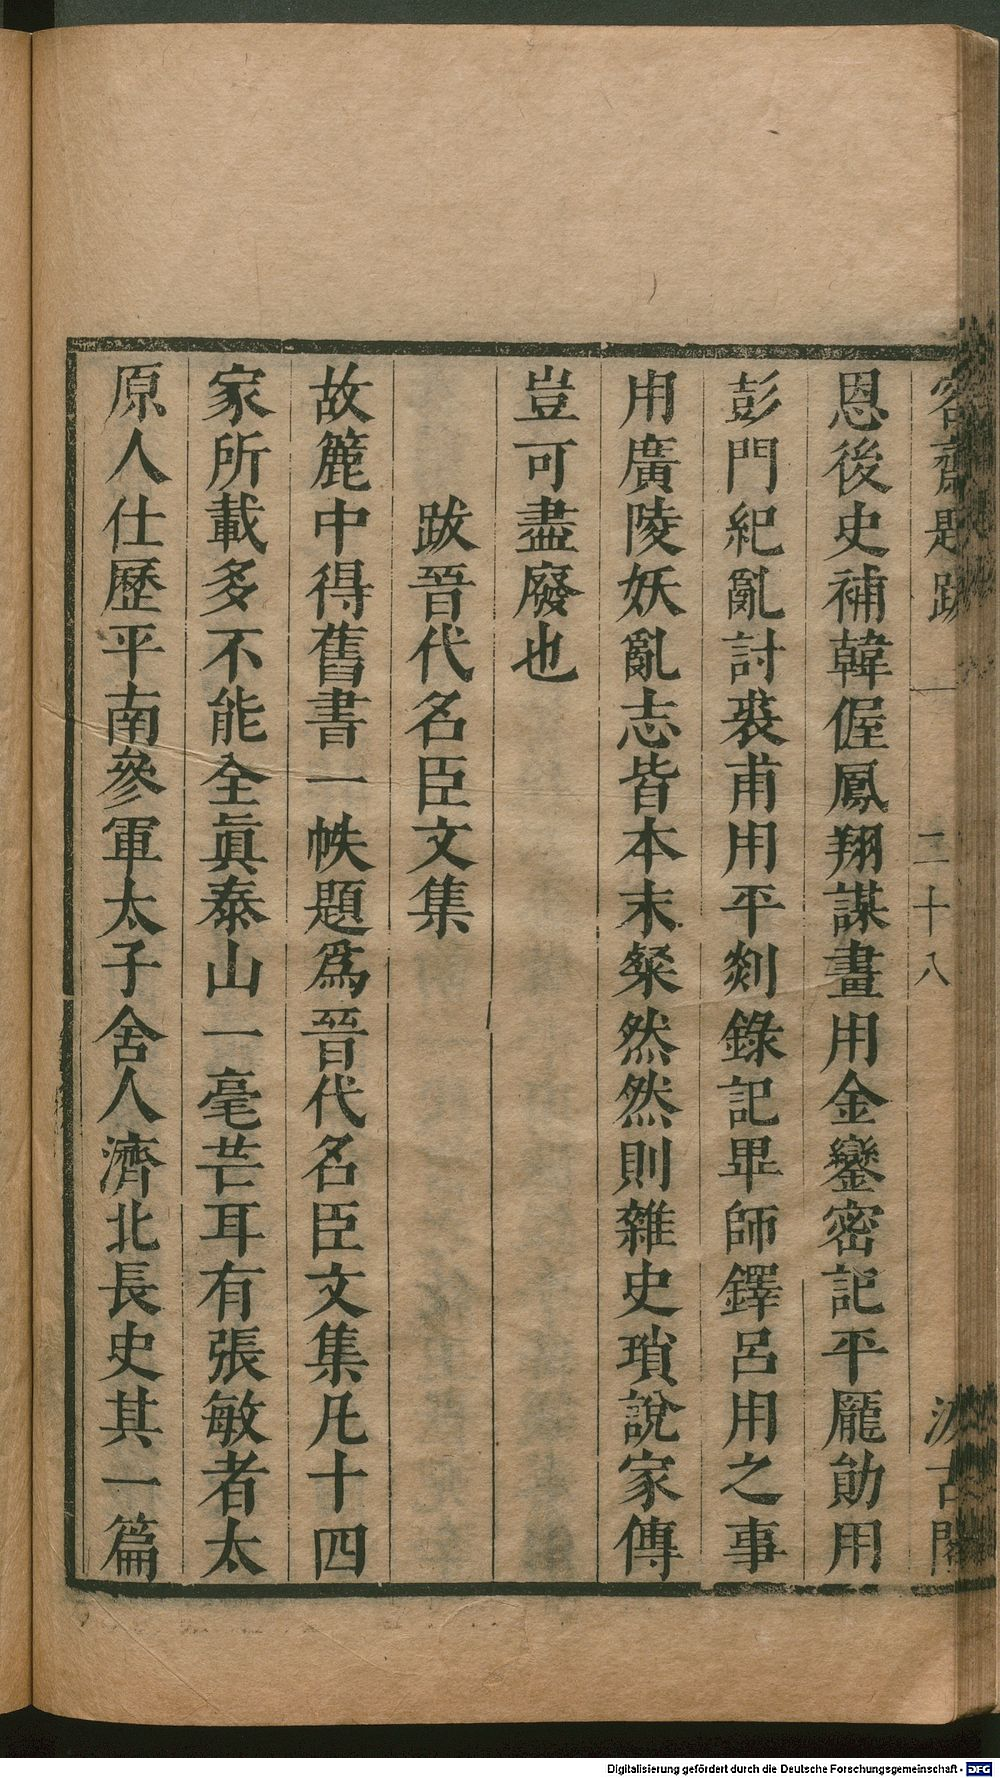 容齋題跋 一 二十八 汲古閣
恩後史補韓偓鳳翔謀畫用金鑾密記平龐勛用
彭門紀亂討裘甫用平剡錄記畢師鐸呂用之事
用廣陵妖亂志皆本末粲然然則雜史瑣說家傳
豈可盡廢也
跋晉代名臣文集
故簏中得舊書一帙題爲晉代名臣文集凡十四
家所載多不能全眞泰山一毫芒耳有張敏者太
原人仕歷平南參軍太子舍人濟北長史其一篇
Digitalisierung gefördert durch die Deutsche Forschungsgemeinschaft - DFG